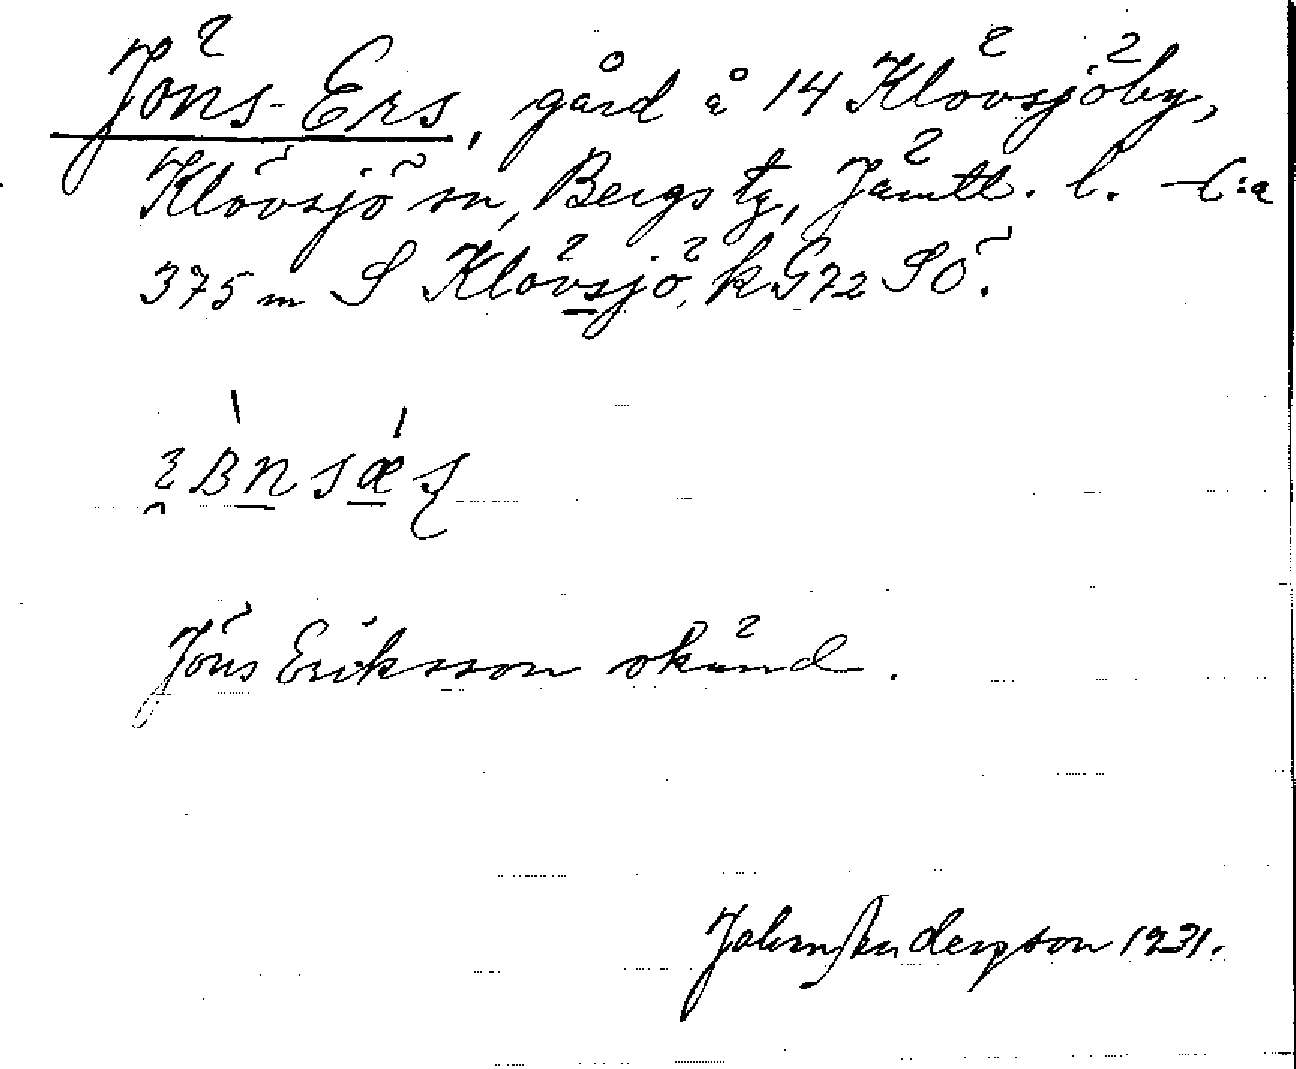 Jöns-Ers, gård å 14 Klövsjöby,
Klövsjö sn, Bergs tg, Jämtl. l. C:a
375 m S Klövsjö, k G72 SÖ.
Jöns Eriksson okänd.
Johm Anderpson 1931.